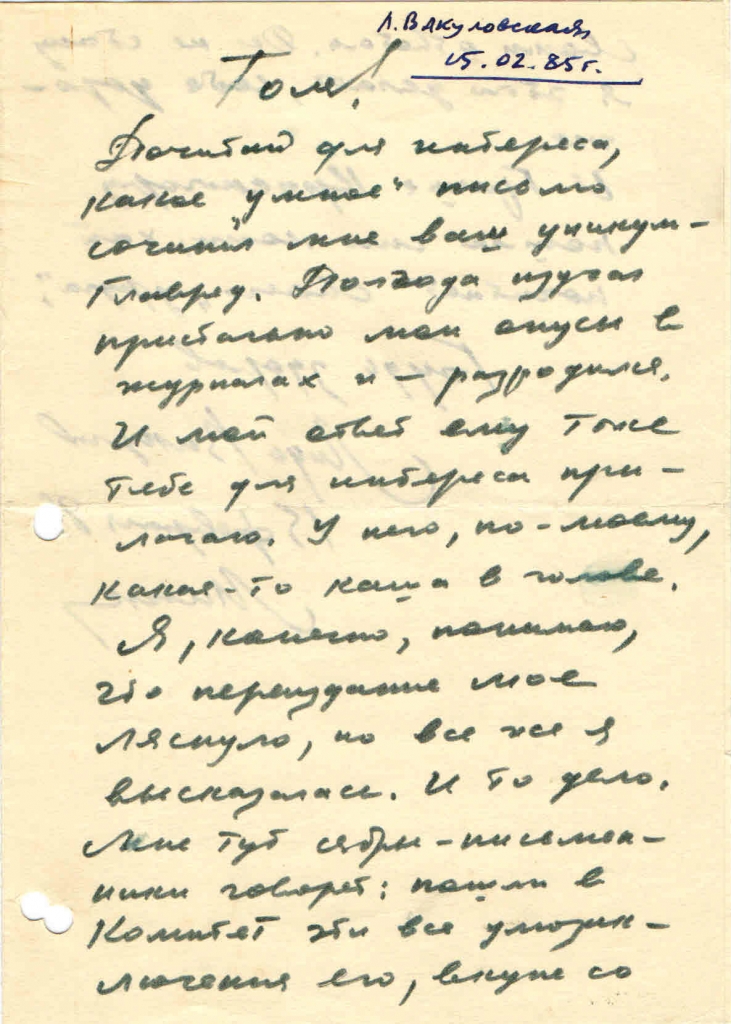 Л. Вакуловская,
15.02.85 г.
Толя!
Почитай для интереса,
какое "умное" письмо
сочинил мне ваш уникум-
Главред. Полгода изучал
пристально мои опусы в
журналах и – разродился.
И мой ответ ему тоже
тебе для интереса при-
лагаю. У него, по-моему,
какая-то каша в голове.
Я, конечно, понимаю,
что переиздание мое
ляснуло, но все же я
высказалась. И то дело.
Мне тут сябры-письмен-
ники говорят: пошли в
Комитет эти все умозак-
лючения его, вкупе со